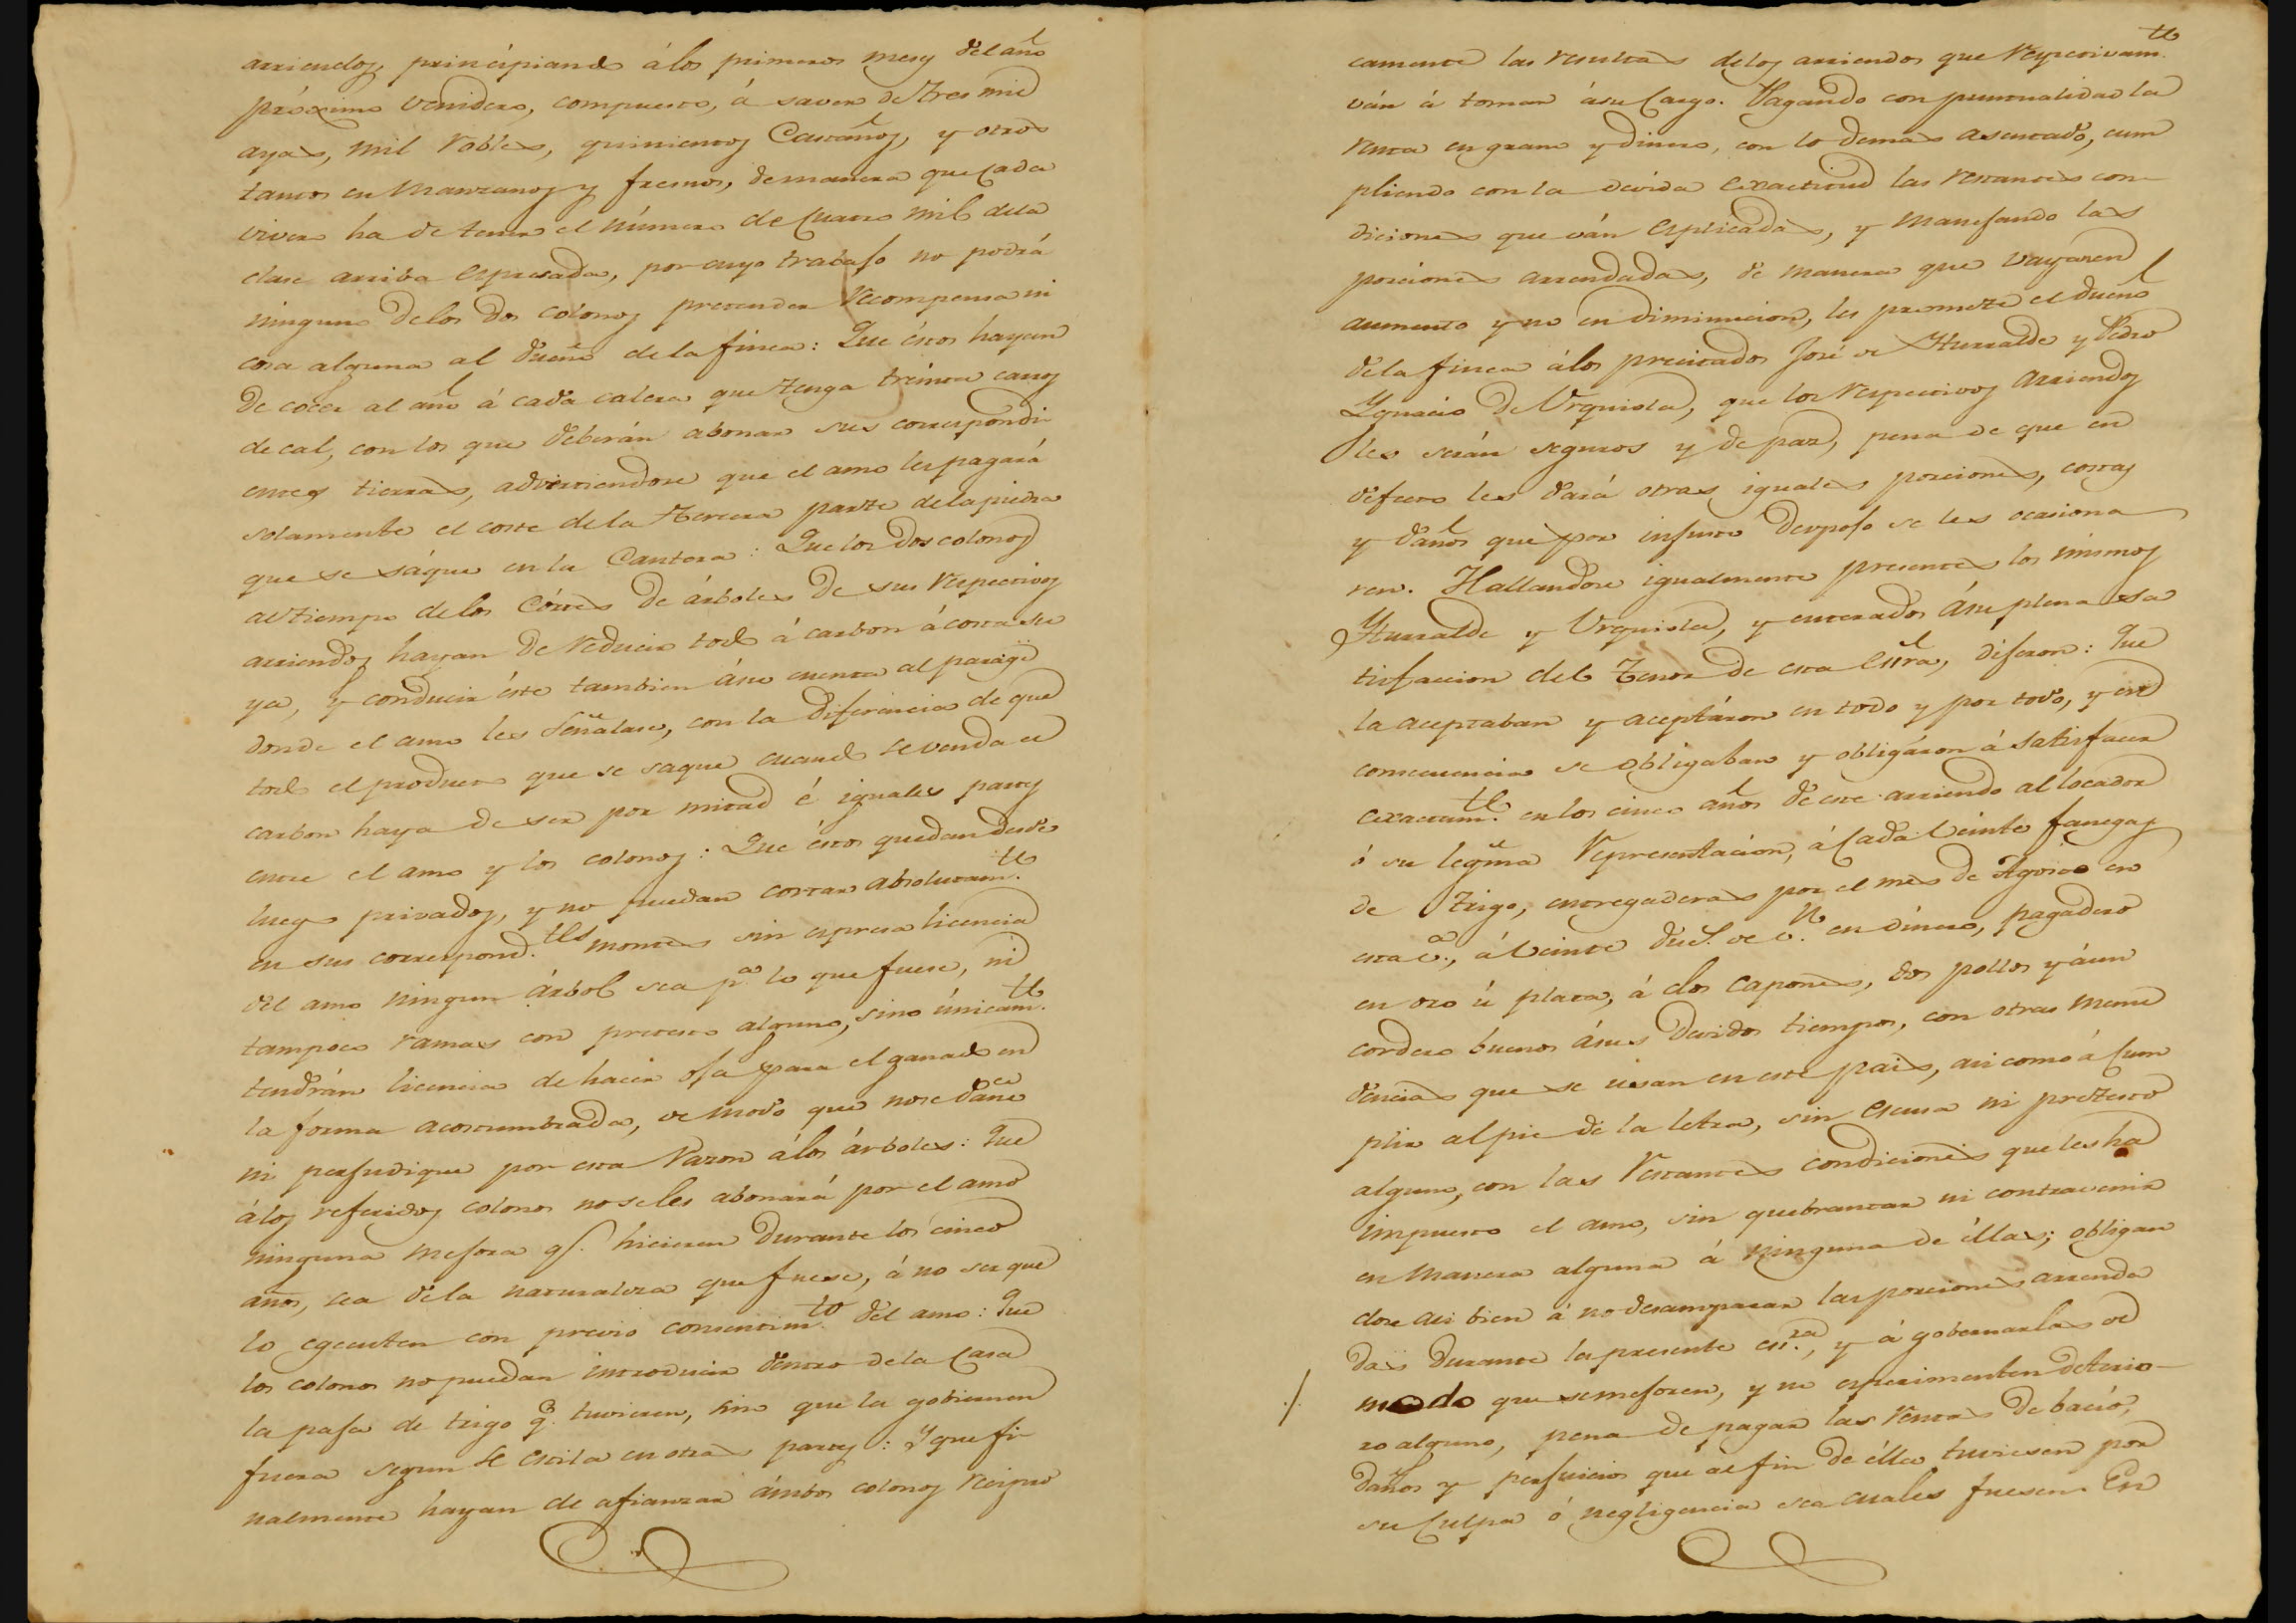 arriendos, principiando á los primeros meses del año
próximo venidero, compuesto, á saver de tres mil
ayas, mil robles, quinientos Castaños, y otros
tantos en Manzanos y fresnos, demanera que cada
vivero ha de tener el número de cuatro mil dela
clase arriba espresada, por cuyo trabajo no podrá
ninguno delos dos colonos pretender recompensa ni
cosa alguna al dueño de la finca: Que éstos hayan
de cocer al año á cada calera que tenga treinta carros
de cal, con los que deberán abonar sus correspondi-
entes tierras, advirtiendose que el amo les pagará
solamente el coste de la tercera parte dela piedra
que se sáque en la Cantera: Que los dos colonos
al tiempo delos Córtes de árboles de sus respectivos
arriendos hayan de reducir todo á carbon á costa su
ya, y conducir éste tambien ásu cuenta al parage
donde el amo les señalase, con la diferencia de que
todo el producto que se saque cuando se venda el
carbon haya de ser por mitad é iguales partes
entre el amo y los colonos: Que éstos quedan desde
luego privados, y no puedan cortar absolutam.te
en sus correspond.tes montes sin espresa licencia
del amo ningun árbol sea p.a lo que fuese, ni
tampoco ramas con pretesto alguno, sino únicam.te
tendrán licencia de hacer oja para el ganado en
la forma acostumbrada, de modo que nose dañe
ni perjudique por esta razon álos árboles: Que
álos referidos colonos no seles abonará por el amo
ninguna mejora q.e hicieren durante los cinco
años, sea dela naturaleza que fuese, á no ser que
lo egecuten con previo consentim.to del amo: Que
los colonos no puedan introducir dentro dela Casa
la paja de trigo q.e tuvieren, sino que la gobiernen
fuera segun se estila en otras partes: Y que fi-
nalmente hayan de afianzar ámbos colonos recipro
camente las resultas delos arriendos que respectivam.te
ván á tomar ásu cargo. Pagando con puntualidad la
renta en grano y dinero, con lo demas asentado, cum
pliendo con la devida exactitud las restantes con-
diciones que ván esplicadas, y manejando las
porciones arrendadas, de manera que vayan en
aumento y no en diminucion, les promete el dueño
dela finca álos precitados José de Yturralde y Pedro
Ygnacio de Urquiola, que los respectivos arriendos
les serán seguros y de paz, pena de que en
defecto les dará otras iguales porciones, costas
y daños que por injusto despojo se les ocasiona
ren. Hallandose igualmente presentes los mismos
Yturralde y Urquiola, y enterados ásu plena sa
tisfaccion del tenor de esta Essra, dijeron: Que
la aceptaban y aceptáron en todo y por todo, y en
consecuencia se obligaban y obligáron á satisfacer
exactam.te en los cinco años de este arriendo al locador
ó su legma representacion, á cada veinte fanegas
de trigo, entregaderas por el mes de Agosto en
esta v.a, á veinte du.s de v.n en dinero, pagadero
en oro ú plata, á dos capones, dos pollos y áun
cordero buenos ásus devidos tiempos, con otras menu
dencias que se usan en este pais, asi como á cum
plir al pie de la letra, sin escusa ni pretesto
alguno, con las restantes condiciones que les ha
impuesto el amo, sin quebrantar ni contravenir
en manera alguna á ninguna de éllas; obligan
dose asi bien á no desamparar las porciones arrenda
das durante la presente es.ra, y á gobernarlas de
modo que semejoren, y no esperimenten deterio-
ro alguno, pena de pagar las rentas de bacío,
daños y perjuicios que al fin de élla tuviesen por
su culpa ó negligencia sea cuales fuesen. En